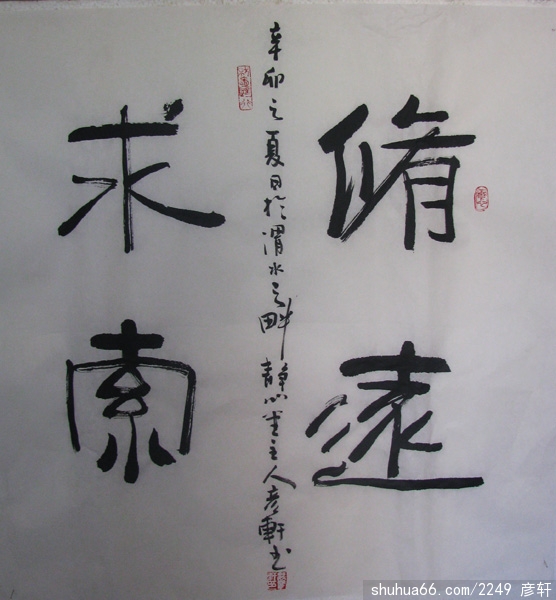 脩遠
辛卯之夏日於渭水之畔静心堂主人彦軒书
求索
shuhua66.com/2249 彦轩